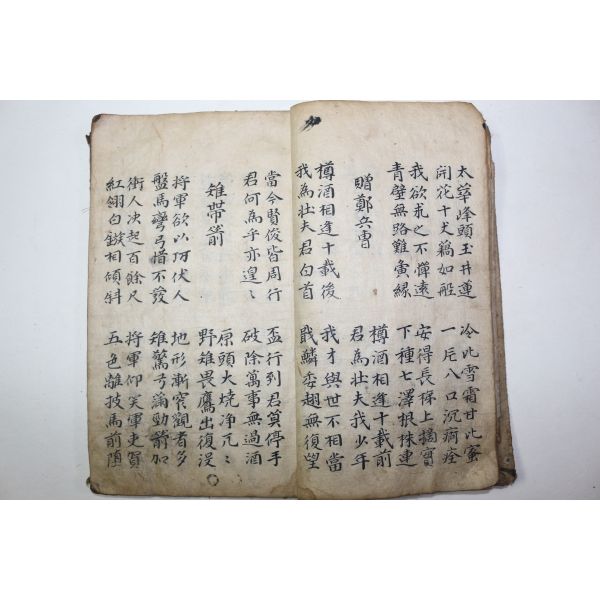 太華峰頭玉井蓮
開花十丈藕如般
冷比雪霜甘比蜜
一片入口沉痾痊
我欲求之不憚遠
青壁無路難夤緣
安得長梯上摘實
下種七澤根株連
贈鄭兵曹
樽酒相逢十載前
君為壯夫我少年
樽酒相逢十載後
我為壯夫君白首
我才與世不相當
戢鱗委翅無復望
當今賢俊皆周行
君何為乎亦遑〻
盃行到君莫停手
破除萬事無過酒
雉帶箭
原頭火燒淨兀〻
野雉畏鷹出復沒
將軍欲以巧伏人
盤馬彎弓惜不發
地形漸窄觀者多
雉驚弓滿勁箭加
衝人决起百餘尺
紅翎白鏃相傾斜
將軍仰笑軍吏賀
五色離披馬前墮